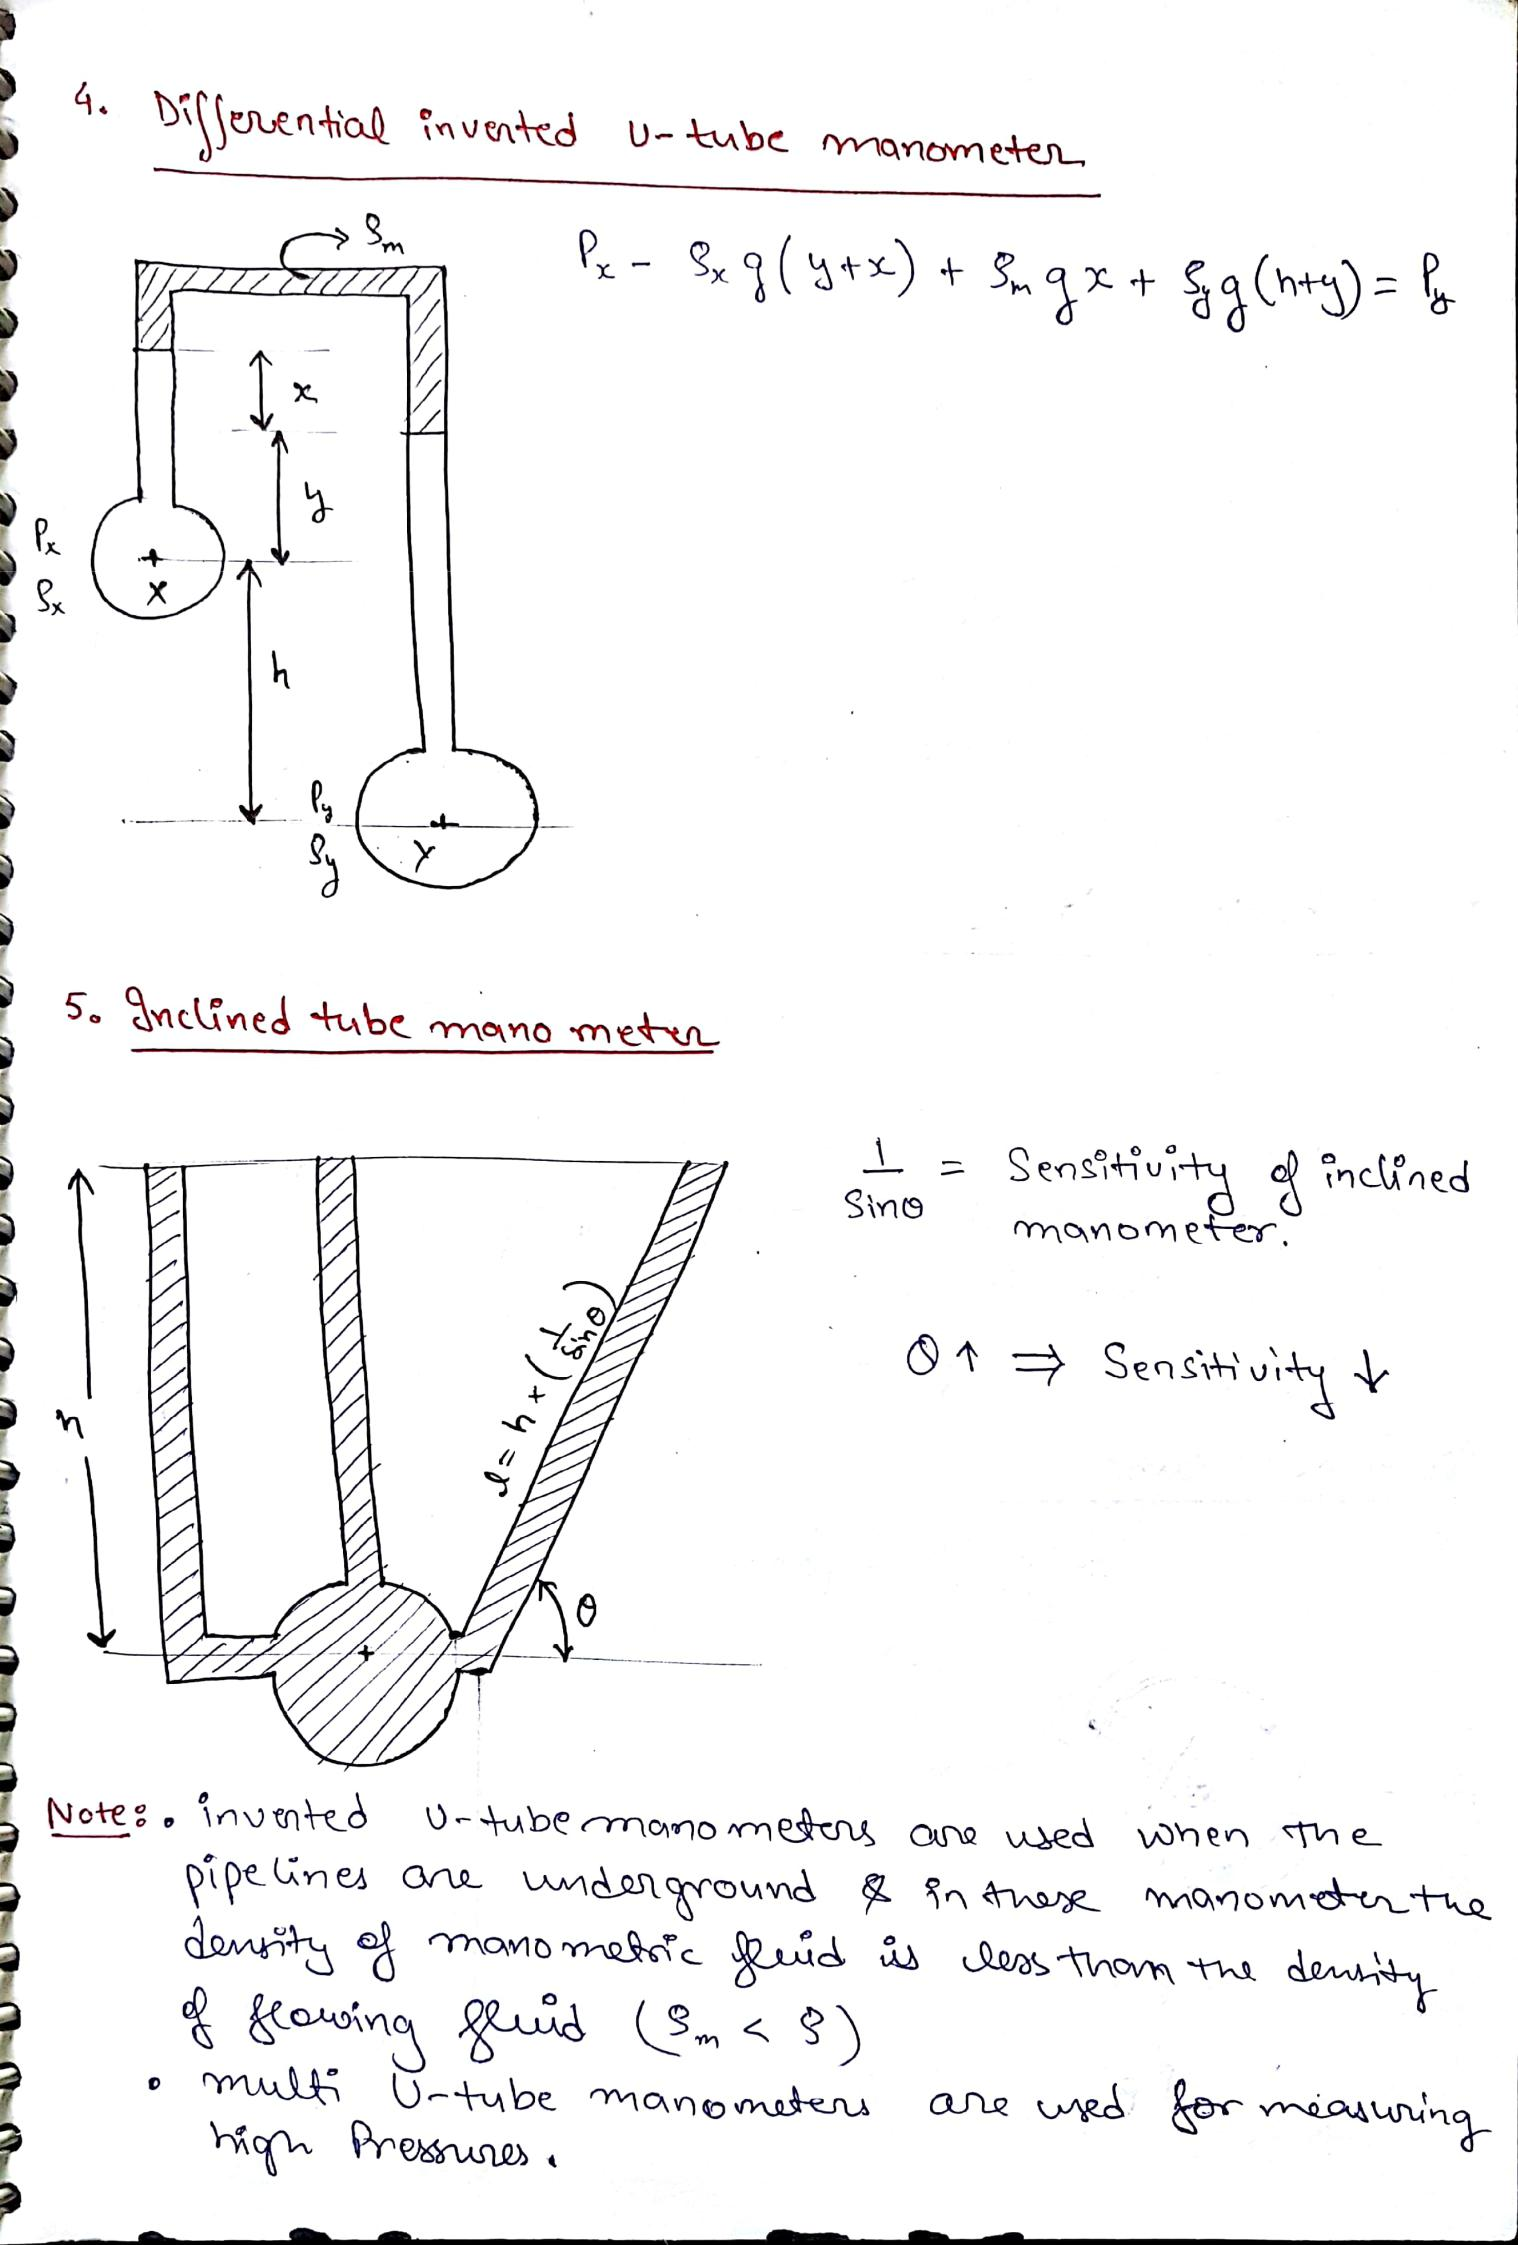 4. Differential inverted U-tube manometer
ρm
Px - ρx g(y+x) + ρm g x + ρy g(h+y) = Py
x
y
Px
ρx
X
h
Py
ρy
Y
5. Inclined tube manometer
1/Sinθ = Sensitivity of inclined
manometer.
l = h + (1/sinθ)
θ↑ ⇒ Sensitivity ↓
h
θ
Note: • inverted U-tube manometers are used when the
pipelines are underground & in these manometer the
density of manometric fluid is less than the density
of flowing fluid (ρm < ρ)
• multi U-tube manometers are used for measuring
high Pressures.